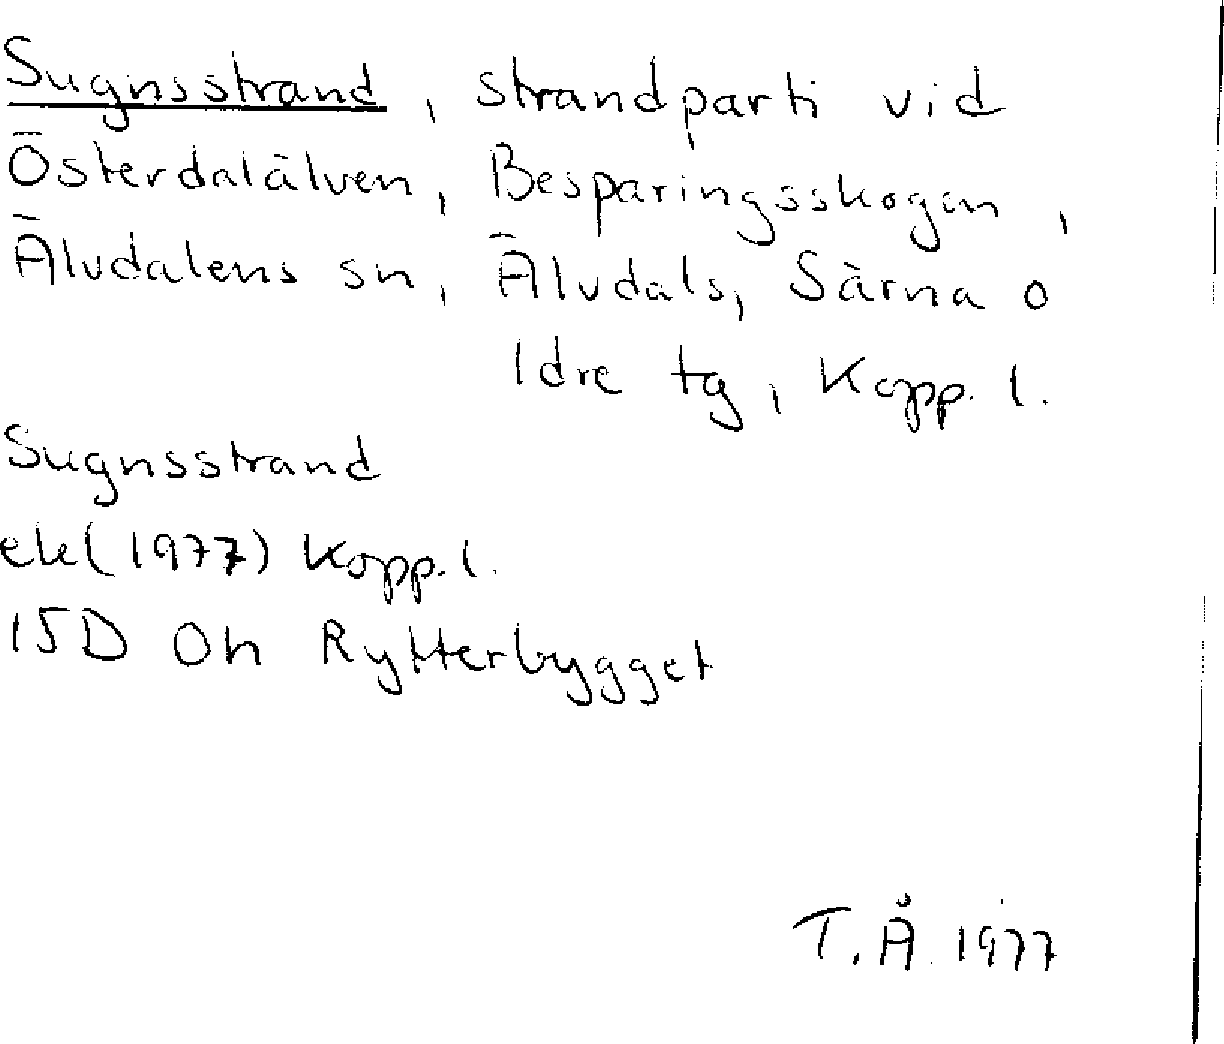 Sugnsstrand, strandparti vid
Österdalälven, Besparingsskogen,
Älvdalens sn, Älvdals, Särna o
Idre tg, Kopp. l.
Sugnsstrand
ek(1977) Kopp. l.
15D Oh Rytterbygget
T. Å. 1977